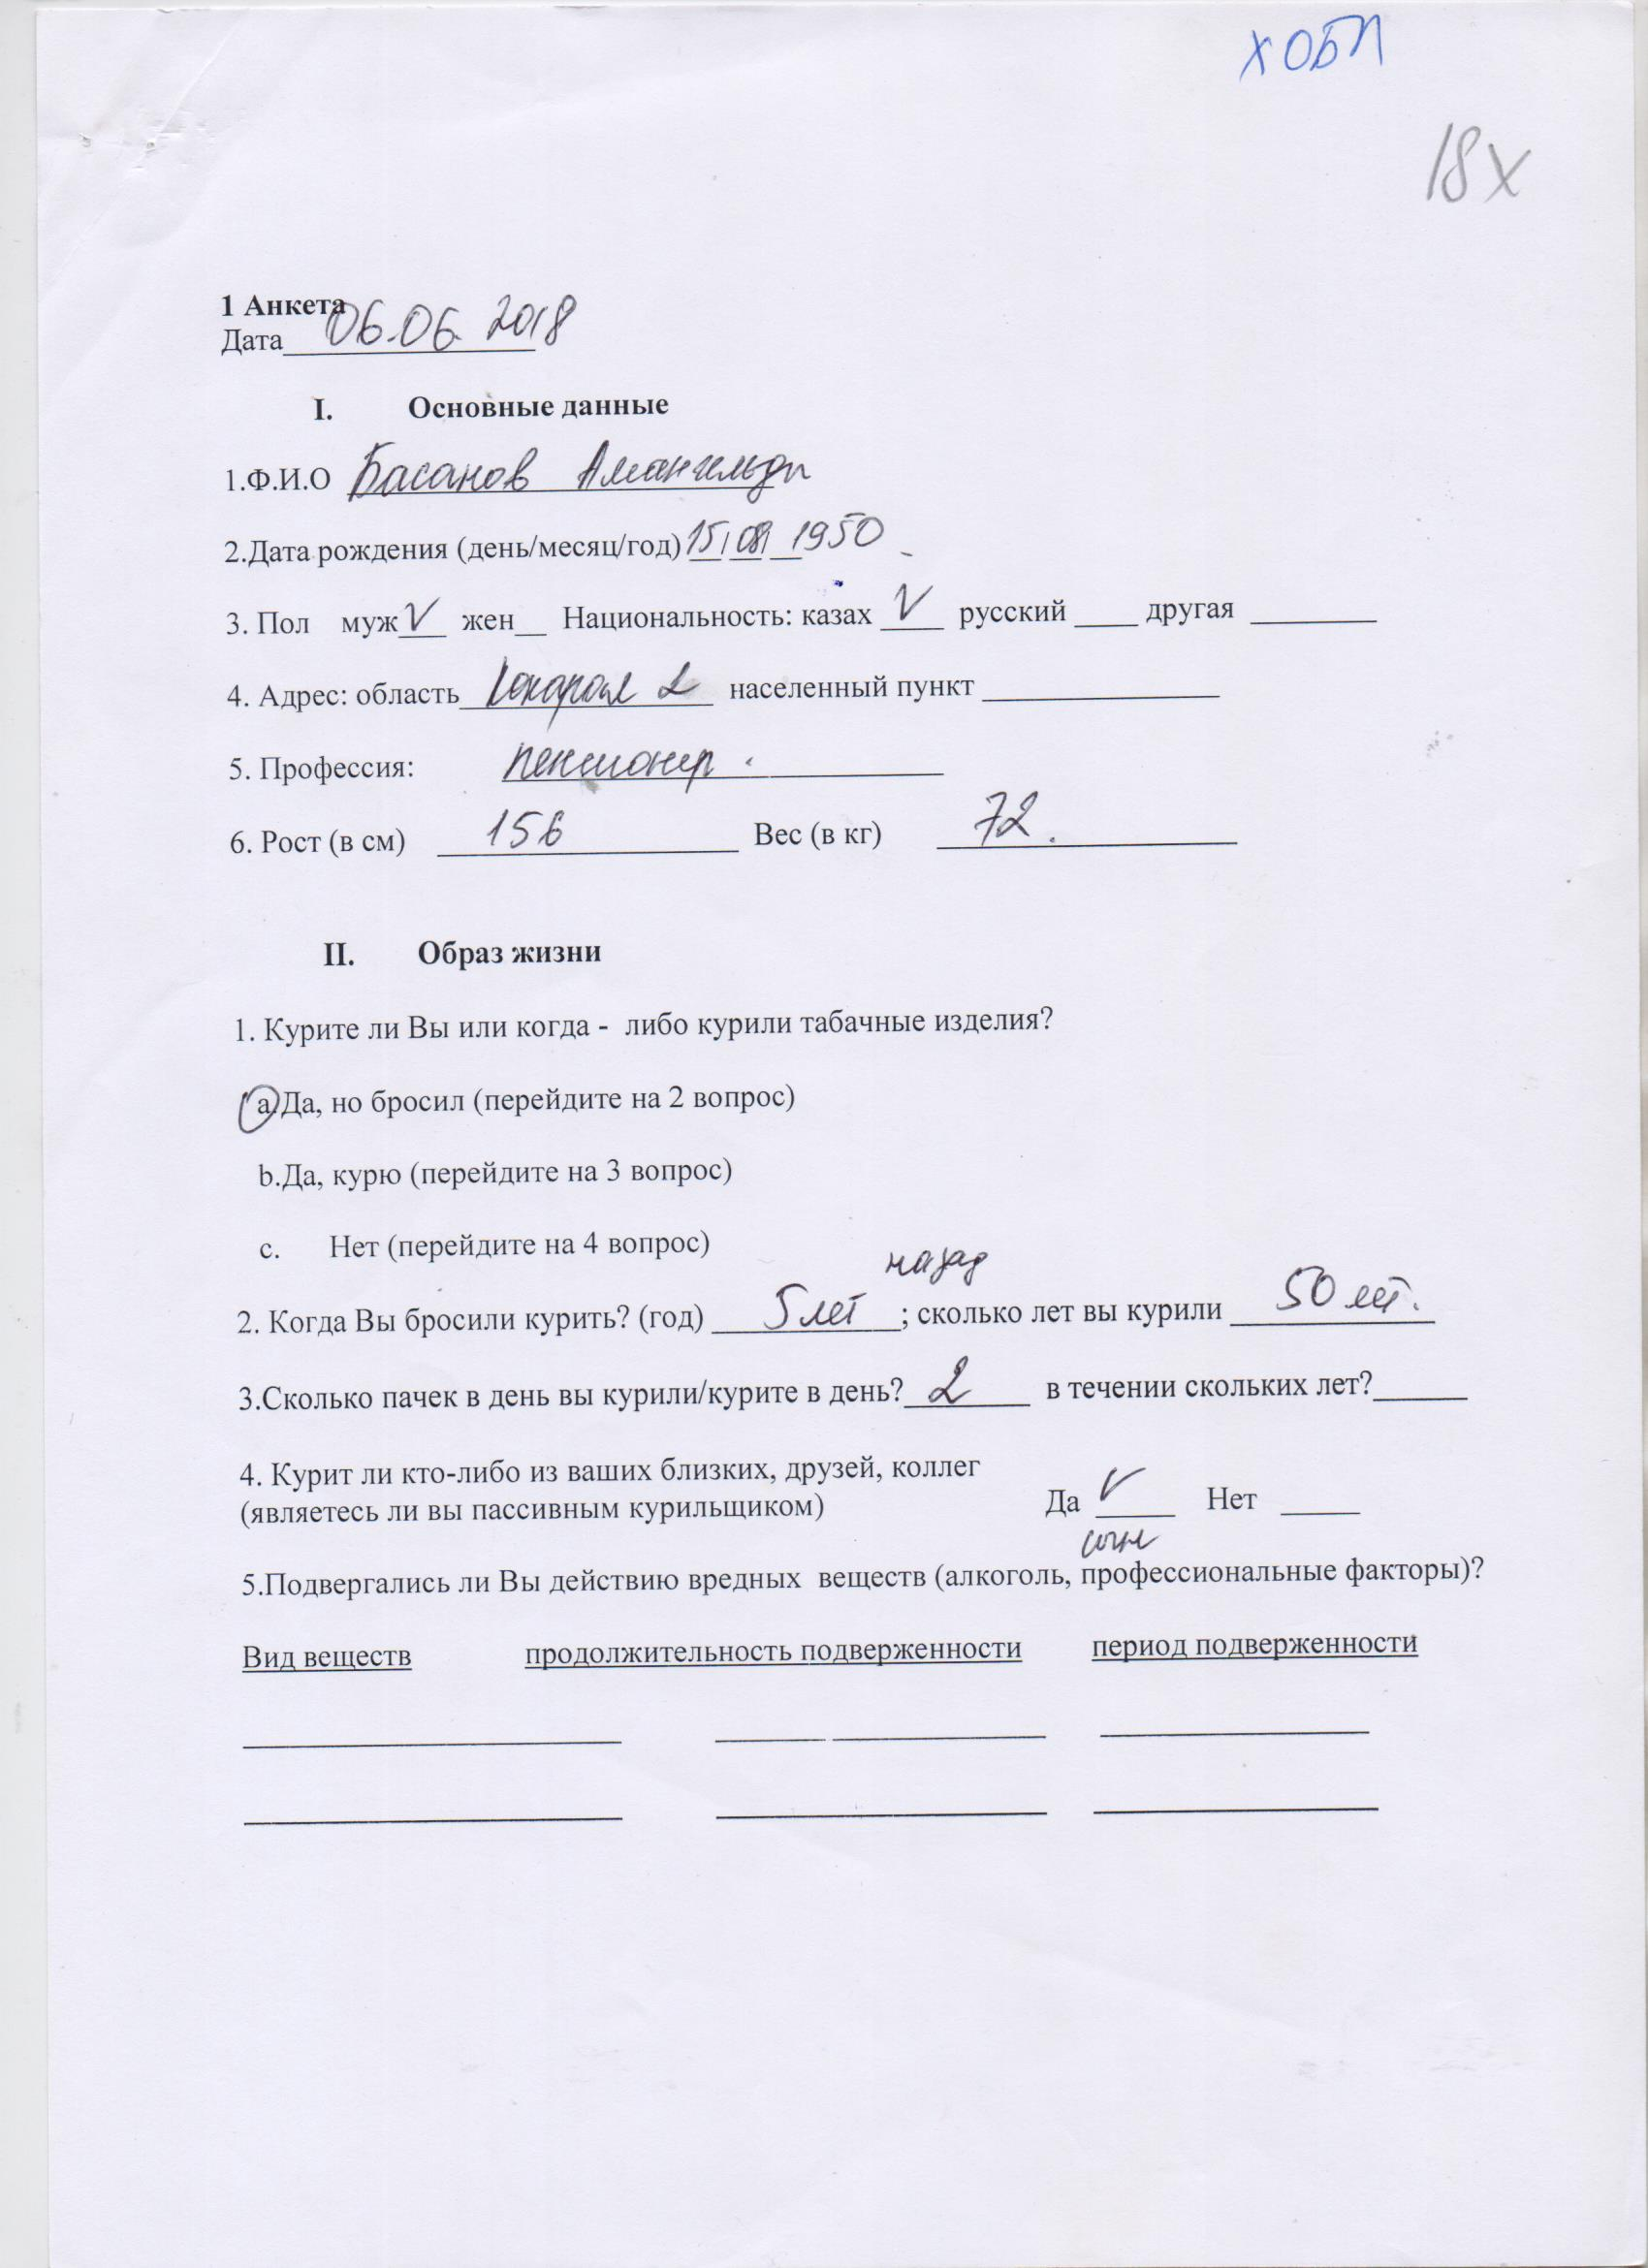 ХОБЛ
18х
1 Анкета
Дата 06.06. 2018
I. Основные данные
1.Ф.И.О Басанов Амангельди
2.Дата рождения (день/месяц/год) 15/08/ 1950
3. Пол муж V жен__ Национальность: казах V русский ____ другая ________
4. Адрес: область 2 населенный пункт _______________
5. Профессия: пенсионер.
6. Рост (в см) 156 Вес (в кг) 72.
II. Образ жизни
1. Курите ли Вы или когда - либо курили табачные изделия?
a.Да, но бросил (перейдите на 2 вопрос)
b.Да, курю (перейдите на 3 вопрос)
c. Нет (перейдите на 4 вопрос)
2. Когда Вы бросили курить? (год) 5 лет назад; сколько лет вы курили 50 лет.
3.Сколько пачек в день вы курили/курите в день? 2 в течении скольких лет?______
4. Курит ли кто-либо из ваших близких, друзей, коллег
(являетесь ли вы пассивным курильщиком) Да V Нет _____
5.Подвергались ли Вы действию вредных веществ (алкоголь, профессиональные факторы)?
Вид веществ продолжительность подверженности период подверженности